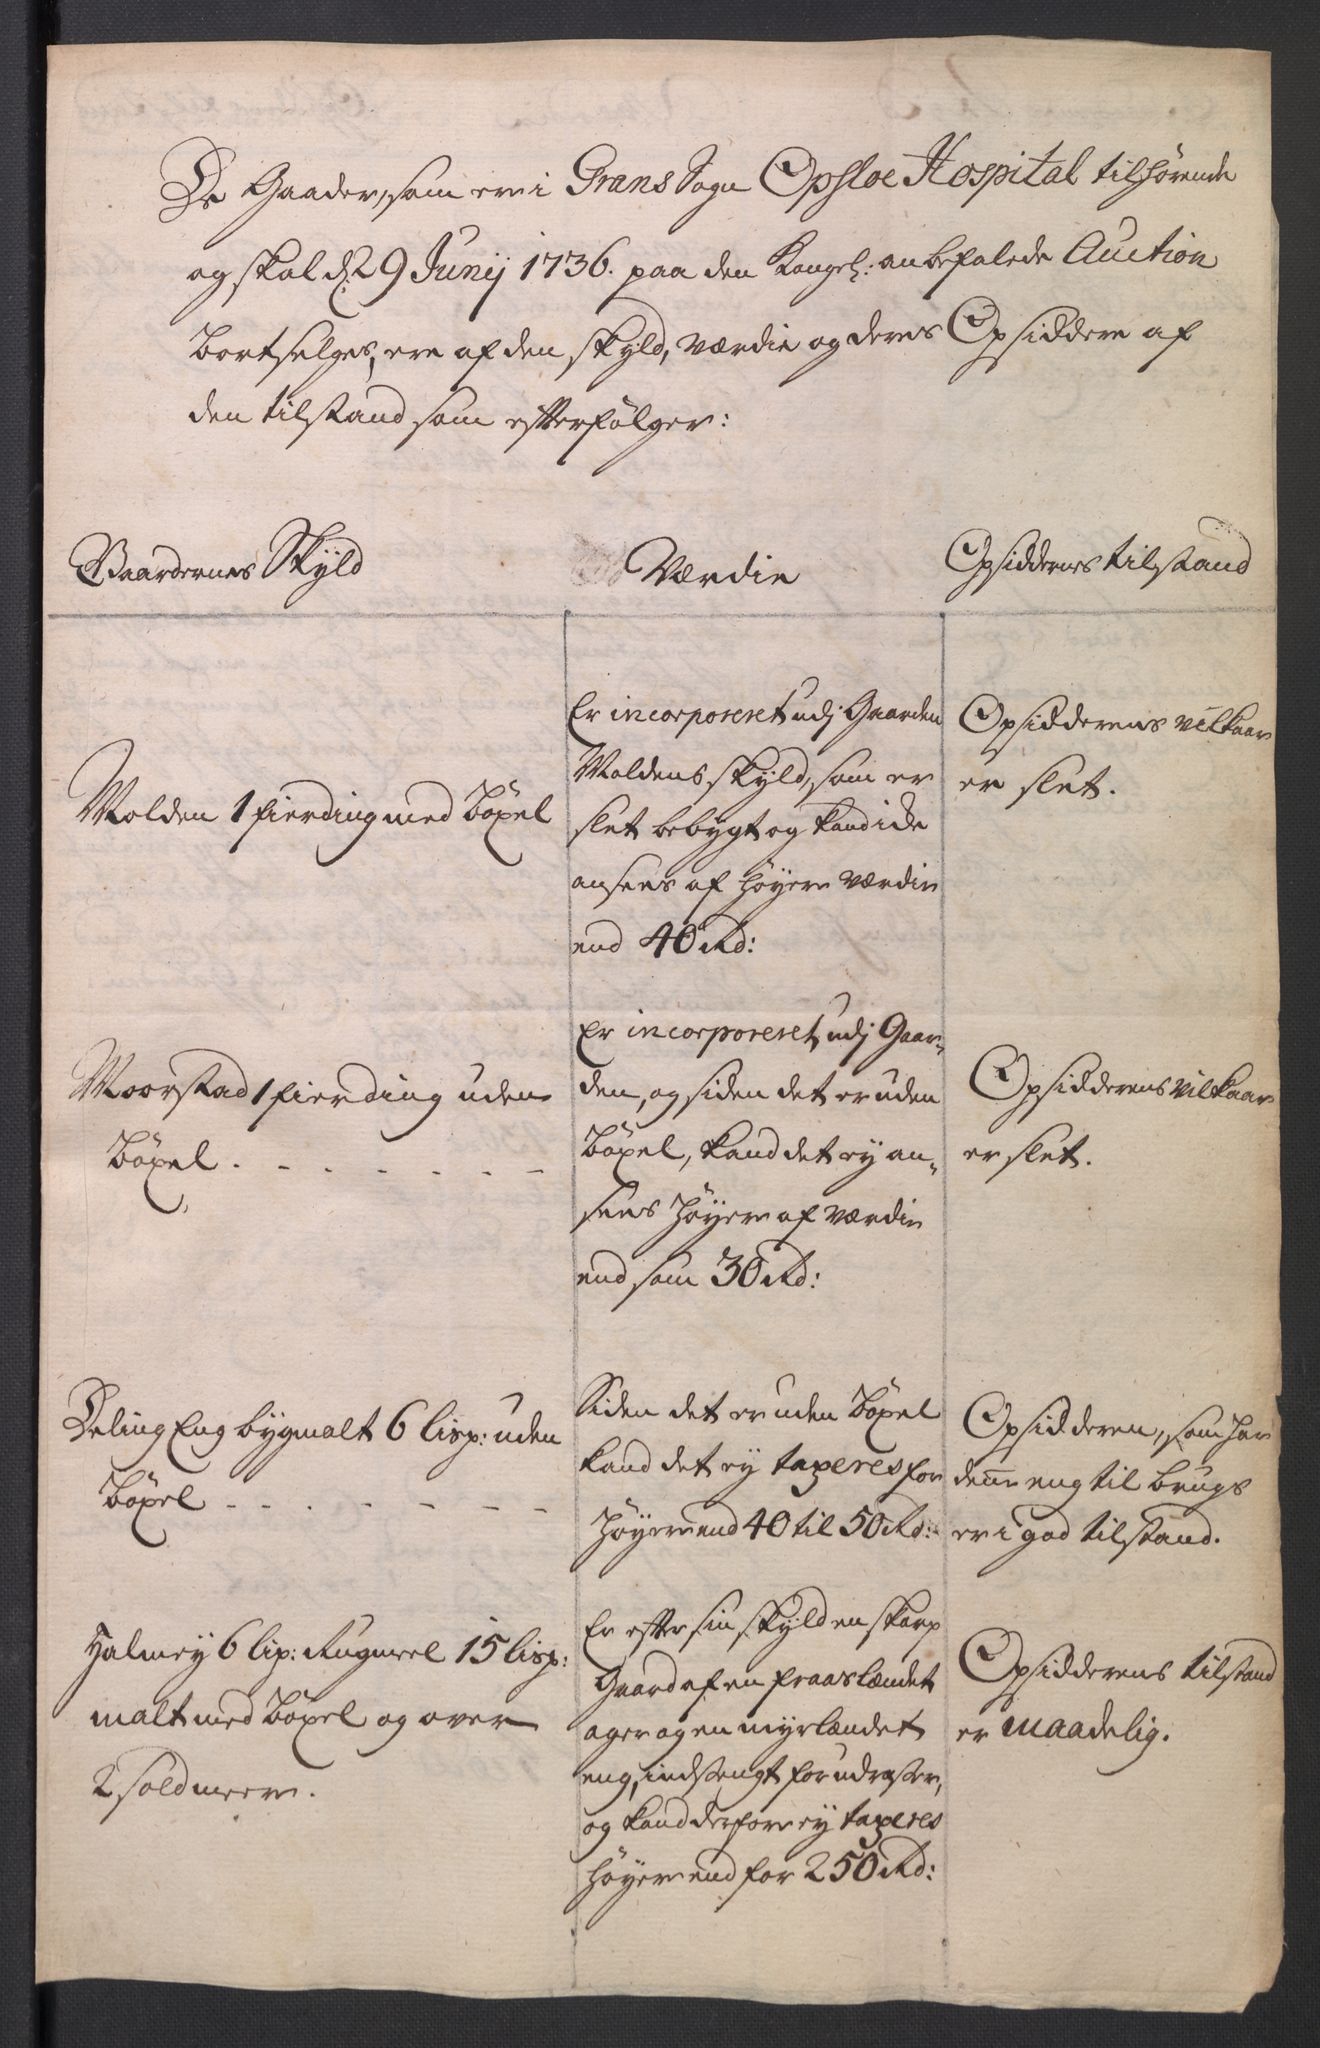 De Gaarder, som ere i Grans Sogn Opsloe Hospital tilhørende
og skal d: 29 Junij 1736. paa den Kongel: anbefalede Auction
bortselges, ere af den skyld, værdie og deres Opsiddere af
den tilstand som efterfölger:
Gaardernes Skÿld
Værdie
Opsiddernes tilstand
Molden 1 fierding med böxel
Er incorporeret udj Gaarden
Moldens skyld, som er
slet bebygt og kand icke
ansees af høyere værdie
end 40 Rd:
Opsidderens vilkaar
er slet.
Moorstad 1 fierding uden
böxel . - - . - - -
Er incorporeret udj Gaar-
den, og siden det er uden
böxel, kand det ey an-
sees høyere af værdie
end som 30 Rd:
Opsidderens vilkaar
er slet.
Deling Eng bygmalt 6 lisp: uden
böxel - - . - - - -
Siden det er uden böxel
kand det ey taxeres for
høyere end 40 til 50 Rd:
Opsidderen, som har
denne eng til brugs
er i god tilstand.
Halmey 6 lip: Rugmeel 15 lisp:
malt med böxel og over
2 soldmere.
Er efter sin skyld en skarp
Gaard af en fraaslændet
ager og en myrlændet
eng, indstengt for udraster,
og kand derfore ey taxeres
høyere end for 250 Rd:
Opsidderens tilstand
er maadelig.